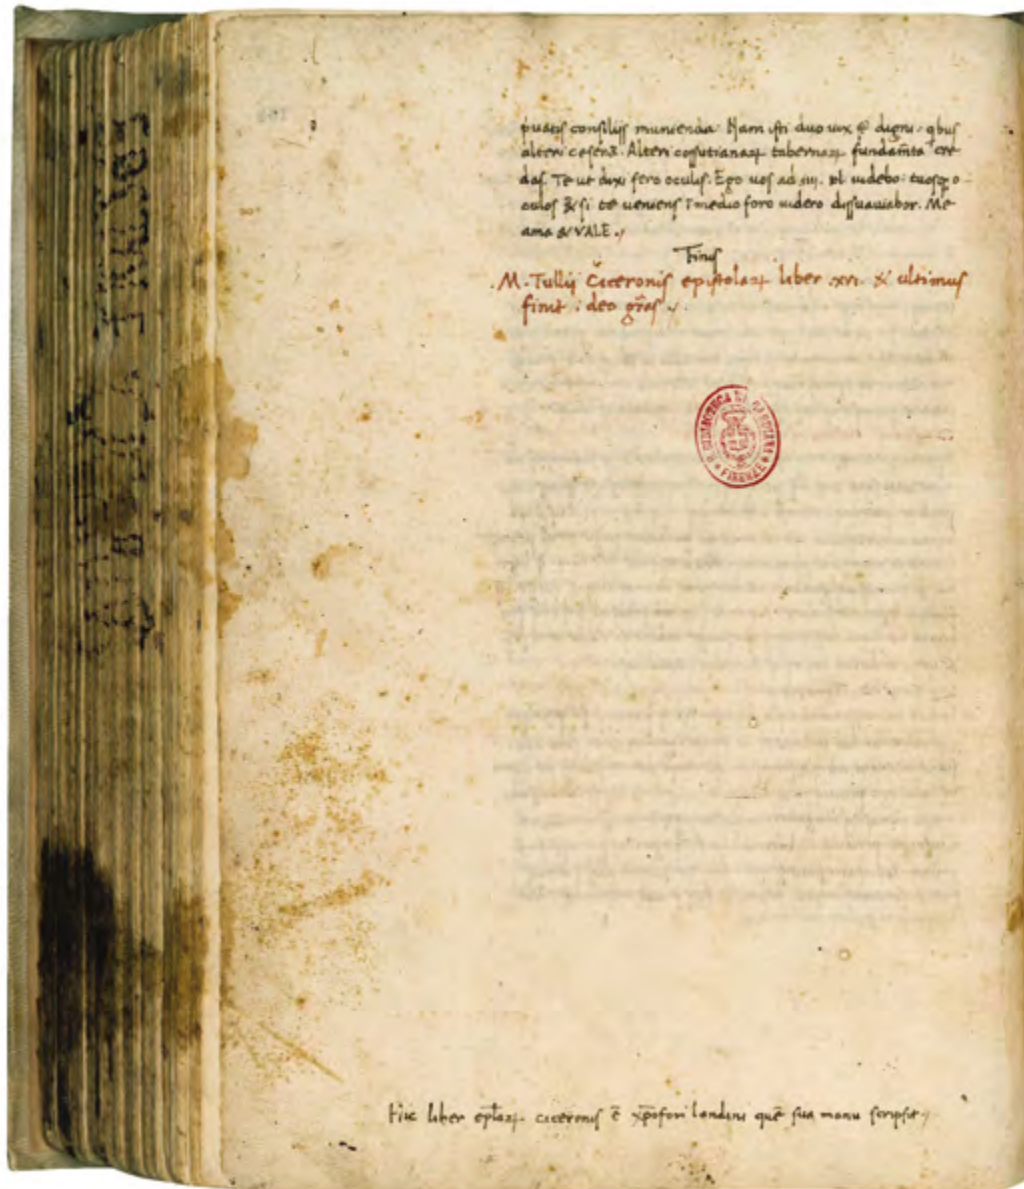 puatis consilijs munienda. Nam isti duo uix st̄ digni. qbus
alteri cesenā. Alteri cossutianaꝝ tabernaꝝ fundam̄ta cre
das. Te ut dixi fero oculis. Ego uos ad .iii. kl uidebo: tuosqꝫ o
culos & si te ueniens ī medio foro uidero dissuauiabor. Me
ama & VALE.
Finis
.M. Tullij Ciceronis epistolaꝝ liber .xvi. & ultimus
finit: deo gr̄as
R. BIBLIOTECA RICCARDIANA FIRENZE
Hic liber ep̄laꝝ ciceronis ē xp̄ofori landini quē sua manu scripsit